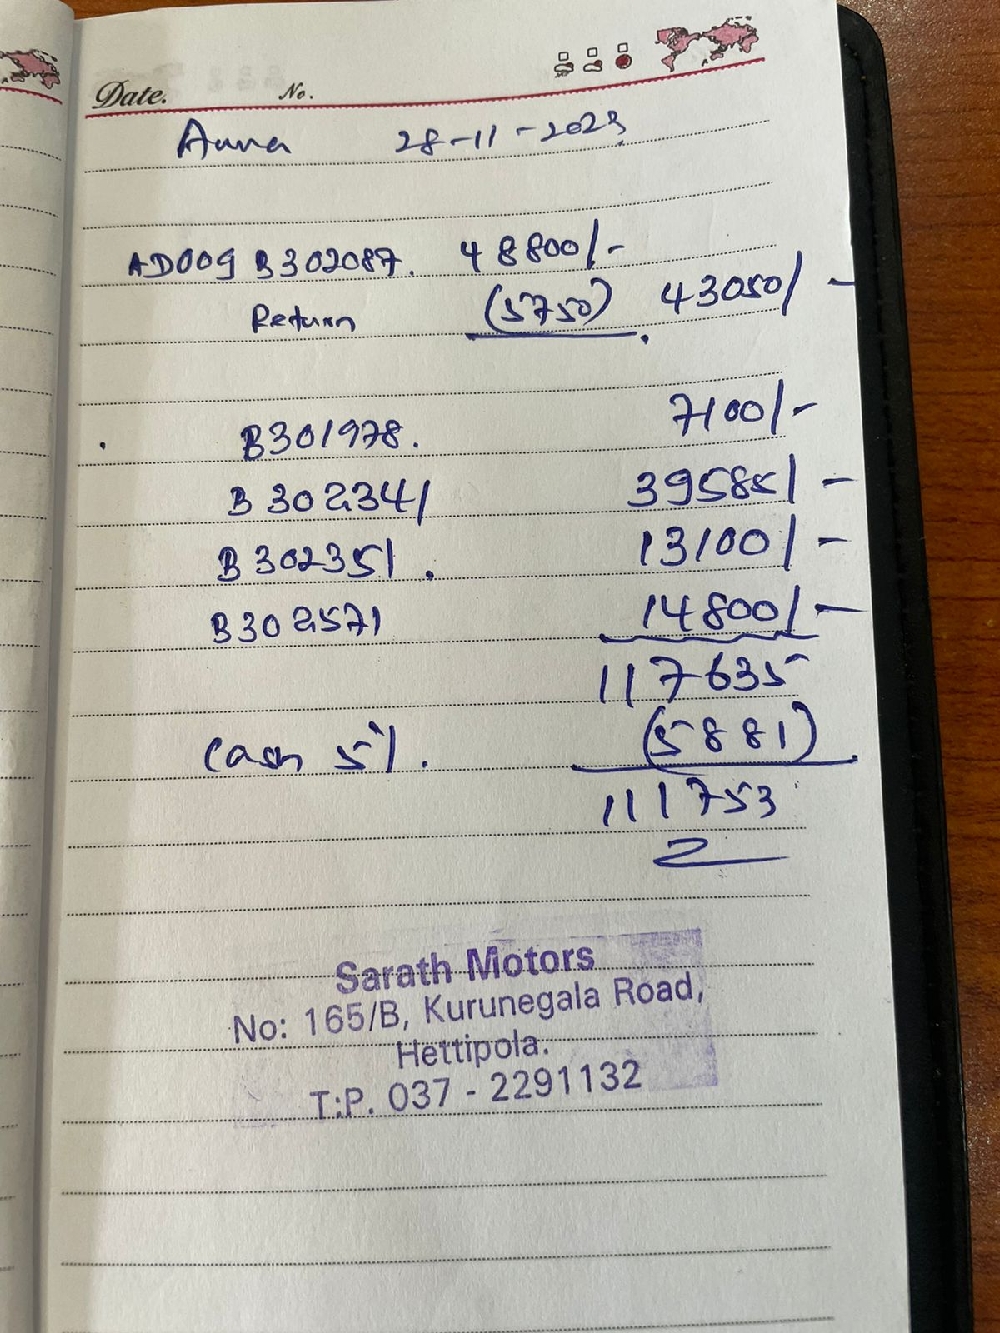 Date. No.
Auna 28-11-2023
AD009 B302087. 48800/-
Return (5750) 43050/-
B301978. 7100/-
B302341 39585/-
B302351. 13100/-
B302571 14800/-
117635
Cash 5%. (5881)
111753
Sarath Motors
No: 165/B, Kurunegala Road,
Hettipola.
T.P. 037 - 2291132